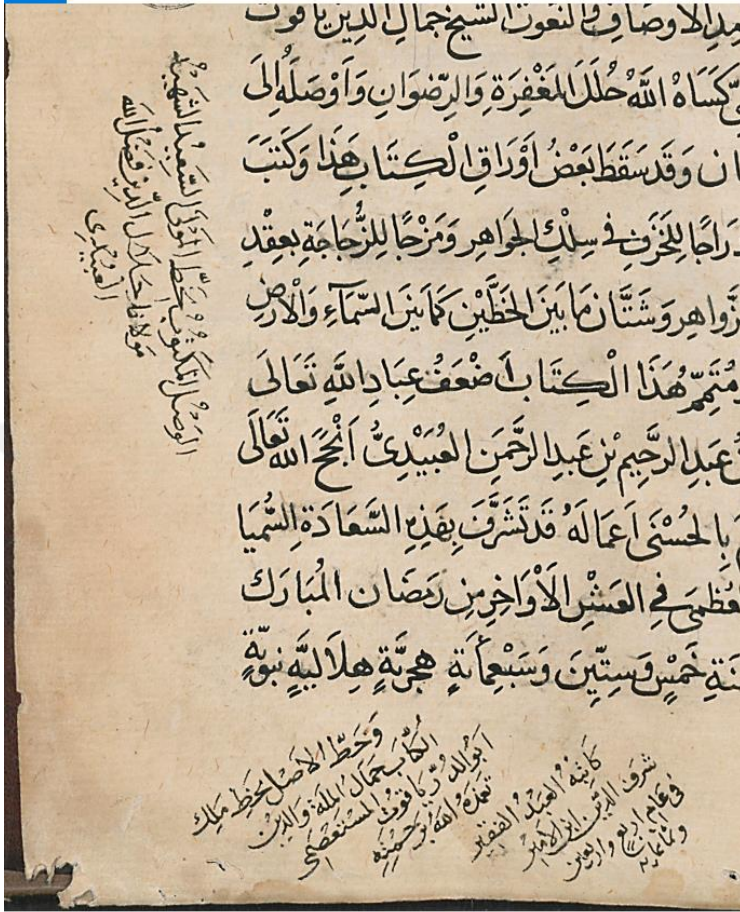 الأوصاف والنعوت الشيخ جمال الدين ياقوت
كساه الله حلل المغفرة والرضوان وأوصله إلى
وقد سقط بعض أوراق الكتاب هذا وكتب
للخزف في سلك الجواهر ومزجًا للزجاجة بعقد
وشتان ما بين الخطين كما بين السماء والأرض
متمم هذا الكتاب أضعف عباد الله تعالى
عبد الرحيم بن عبد الرحمن العبيدي أنجح الله تعالى
بالحسنى أعماله قد تشرف بهذه السعادة السميا
العظمى في العشر الأواخر من رمضان المبارك
سنة خمس وستين وسبعمائة هجرية هلالية نبوية
الوصل المكتوب بخط المولى السعيد الشهيد
مولانا جلال الدين فضل الله
العبيدي
وخط الأصل بخط ملك
الكتاب جمال الملة والدين
أبو الدر ياقوت المستعصمي
تغمده الله برحمته
كاتبه العبد الفقير
شرف الدين ابن الأمير
في عام أربع وأربعين
وثمانمائة